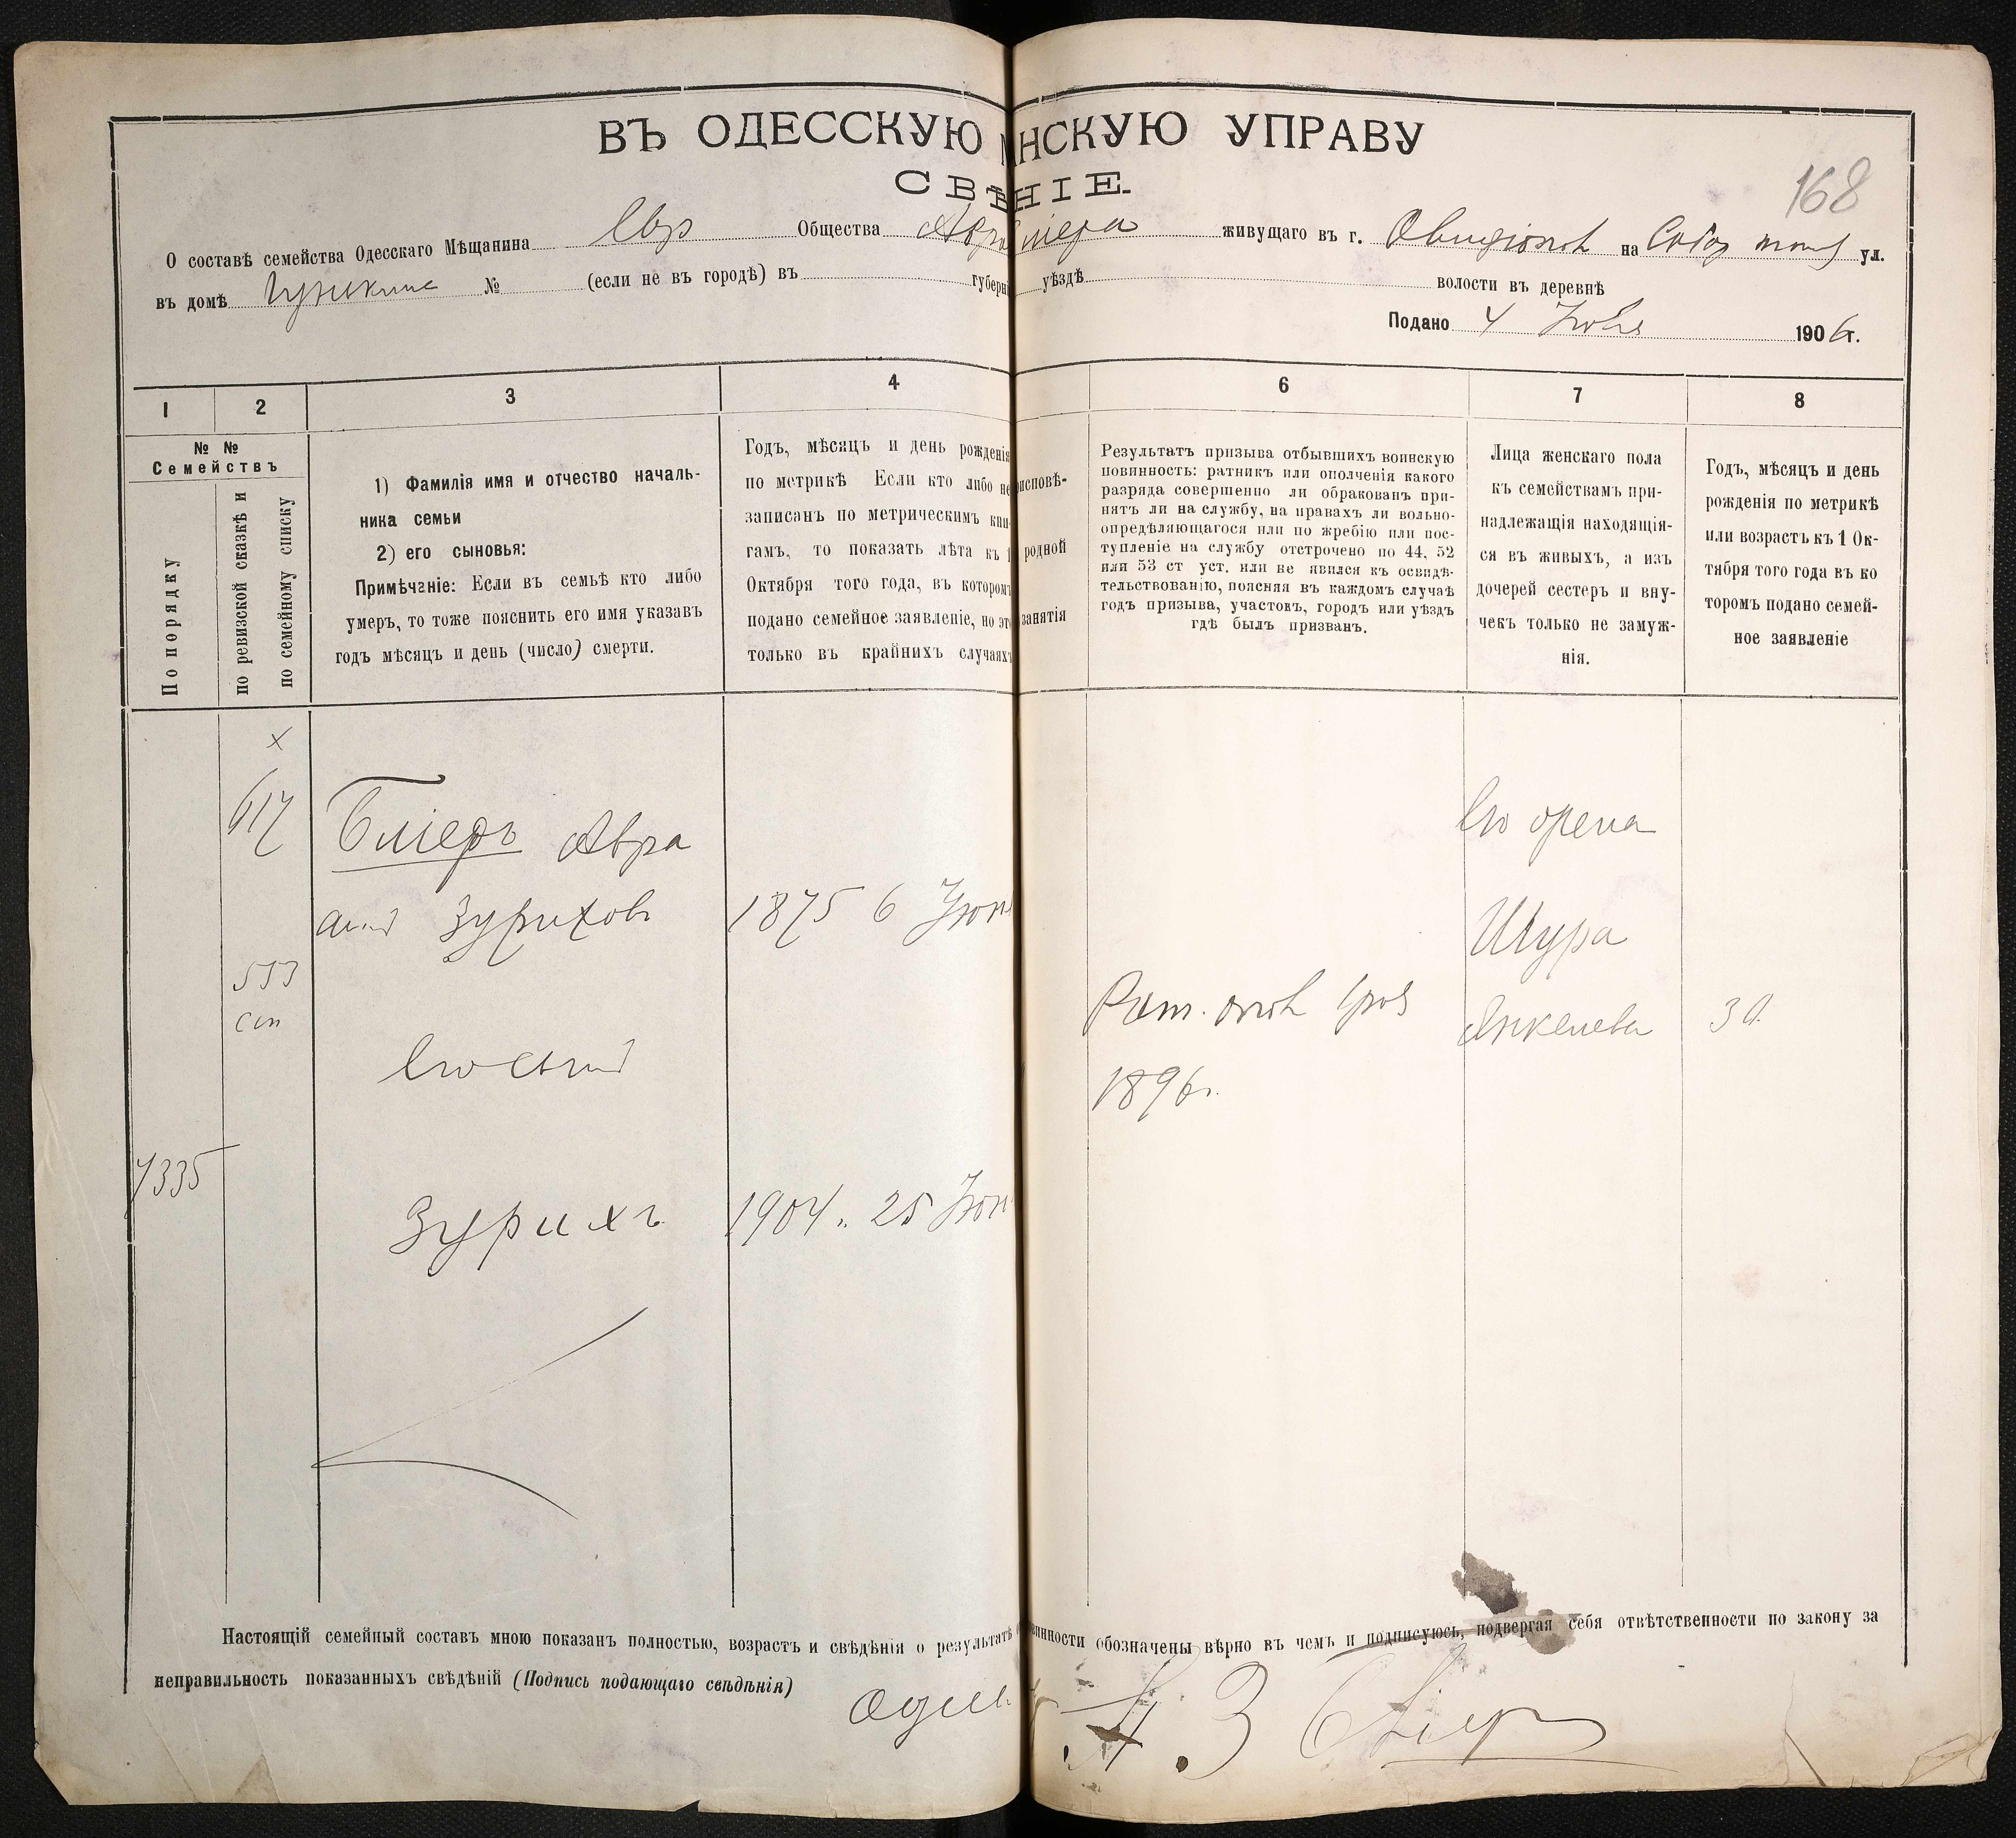 ВЪ ОДЕССКУЮ НСКУЮ УПРАВУ
СВѢНІЕ.
168
О составѣ семейства Одесскаго Мѣщанина Евр Общества живущаго въ г. на ул.
въ домѣ № (если не въ городѣ) въ губерн уѣздѣ волости въ деревнѣ
Подано 4 1906 г.
1 2 3 4 6 7 8
№ №
Семействъ
По порядку
по ревизской сказкѣ и
по семейному списку
1) Фамилія имя и отчество началь-
ника семьи
2) его сыновья:
Примѣчаніе: Если въ семьѣ кто либо
умеръ, то тоже пояснить его имя указавъ
годъ мѣсяцъ и день (число) смерти.
Годъ, мѣсяцъ и день рожденія
по метрикѣ Если кто либо не
записанъ по метрическимъ кни-
гамъ, то показать лѣта къ 1
Октября того года, въ которомъ
подано семейное заявленіе, но это
только въ крайнихъ случаяхъ
исповѣ-
родной
занятія
Результатъ призыва отбывшихъ воинскую
повинность: ратникъ или ополченія какого
разряда совершенно ли обракованъ при-
нятъ ли на службу, на правахъ ли вольно-
опредѣляющагося или по жребію или пос-
тупленіе на службу отстрочено по 44, 52
или 53 ст уст. или не явился къ освидѣ-
тельствованію, поясняя въ каждомъ случаѣ
годъ призыва, участовъ, городъ или уѣздъ
гдѣ былъ призванъ.
Лица женскаго пола
къ семействамъ при-
надлежащія находящія-
ся въ живыхъ, а изъ
дочерей сестеръ и вну-
чекъ только не замуж-
нія.
Годъ, мѣсяцъ и день
рожденія по метрикѣ
или возрастъ къ 1 Ок-
тября того года въ ко
торомъ подано семей-
ное заявленіе
х
617
Бліеръ Авра
амъ Зуриховъ 1875 6 Іюн
533
сп
Его сынъ
7335
Зурихъ 1904. 25 Іюн
Рат.
1896 г.
Его жена
Шура
Янкелева 30
Настоящій семейный составъ мною показанъ полностью, возрастъ и свѣдѣнія о результатѣ винности обозначены вѣрно въ чемъ и подписуюсь, подвергая себя отвѣтственности по закону за
неправильность показанныхъ свѣдѣній (Подпись подающаго свѣдѣнія)
А. З Бліеръ